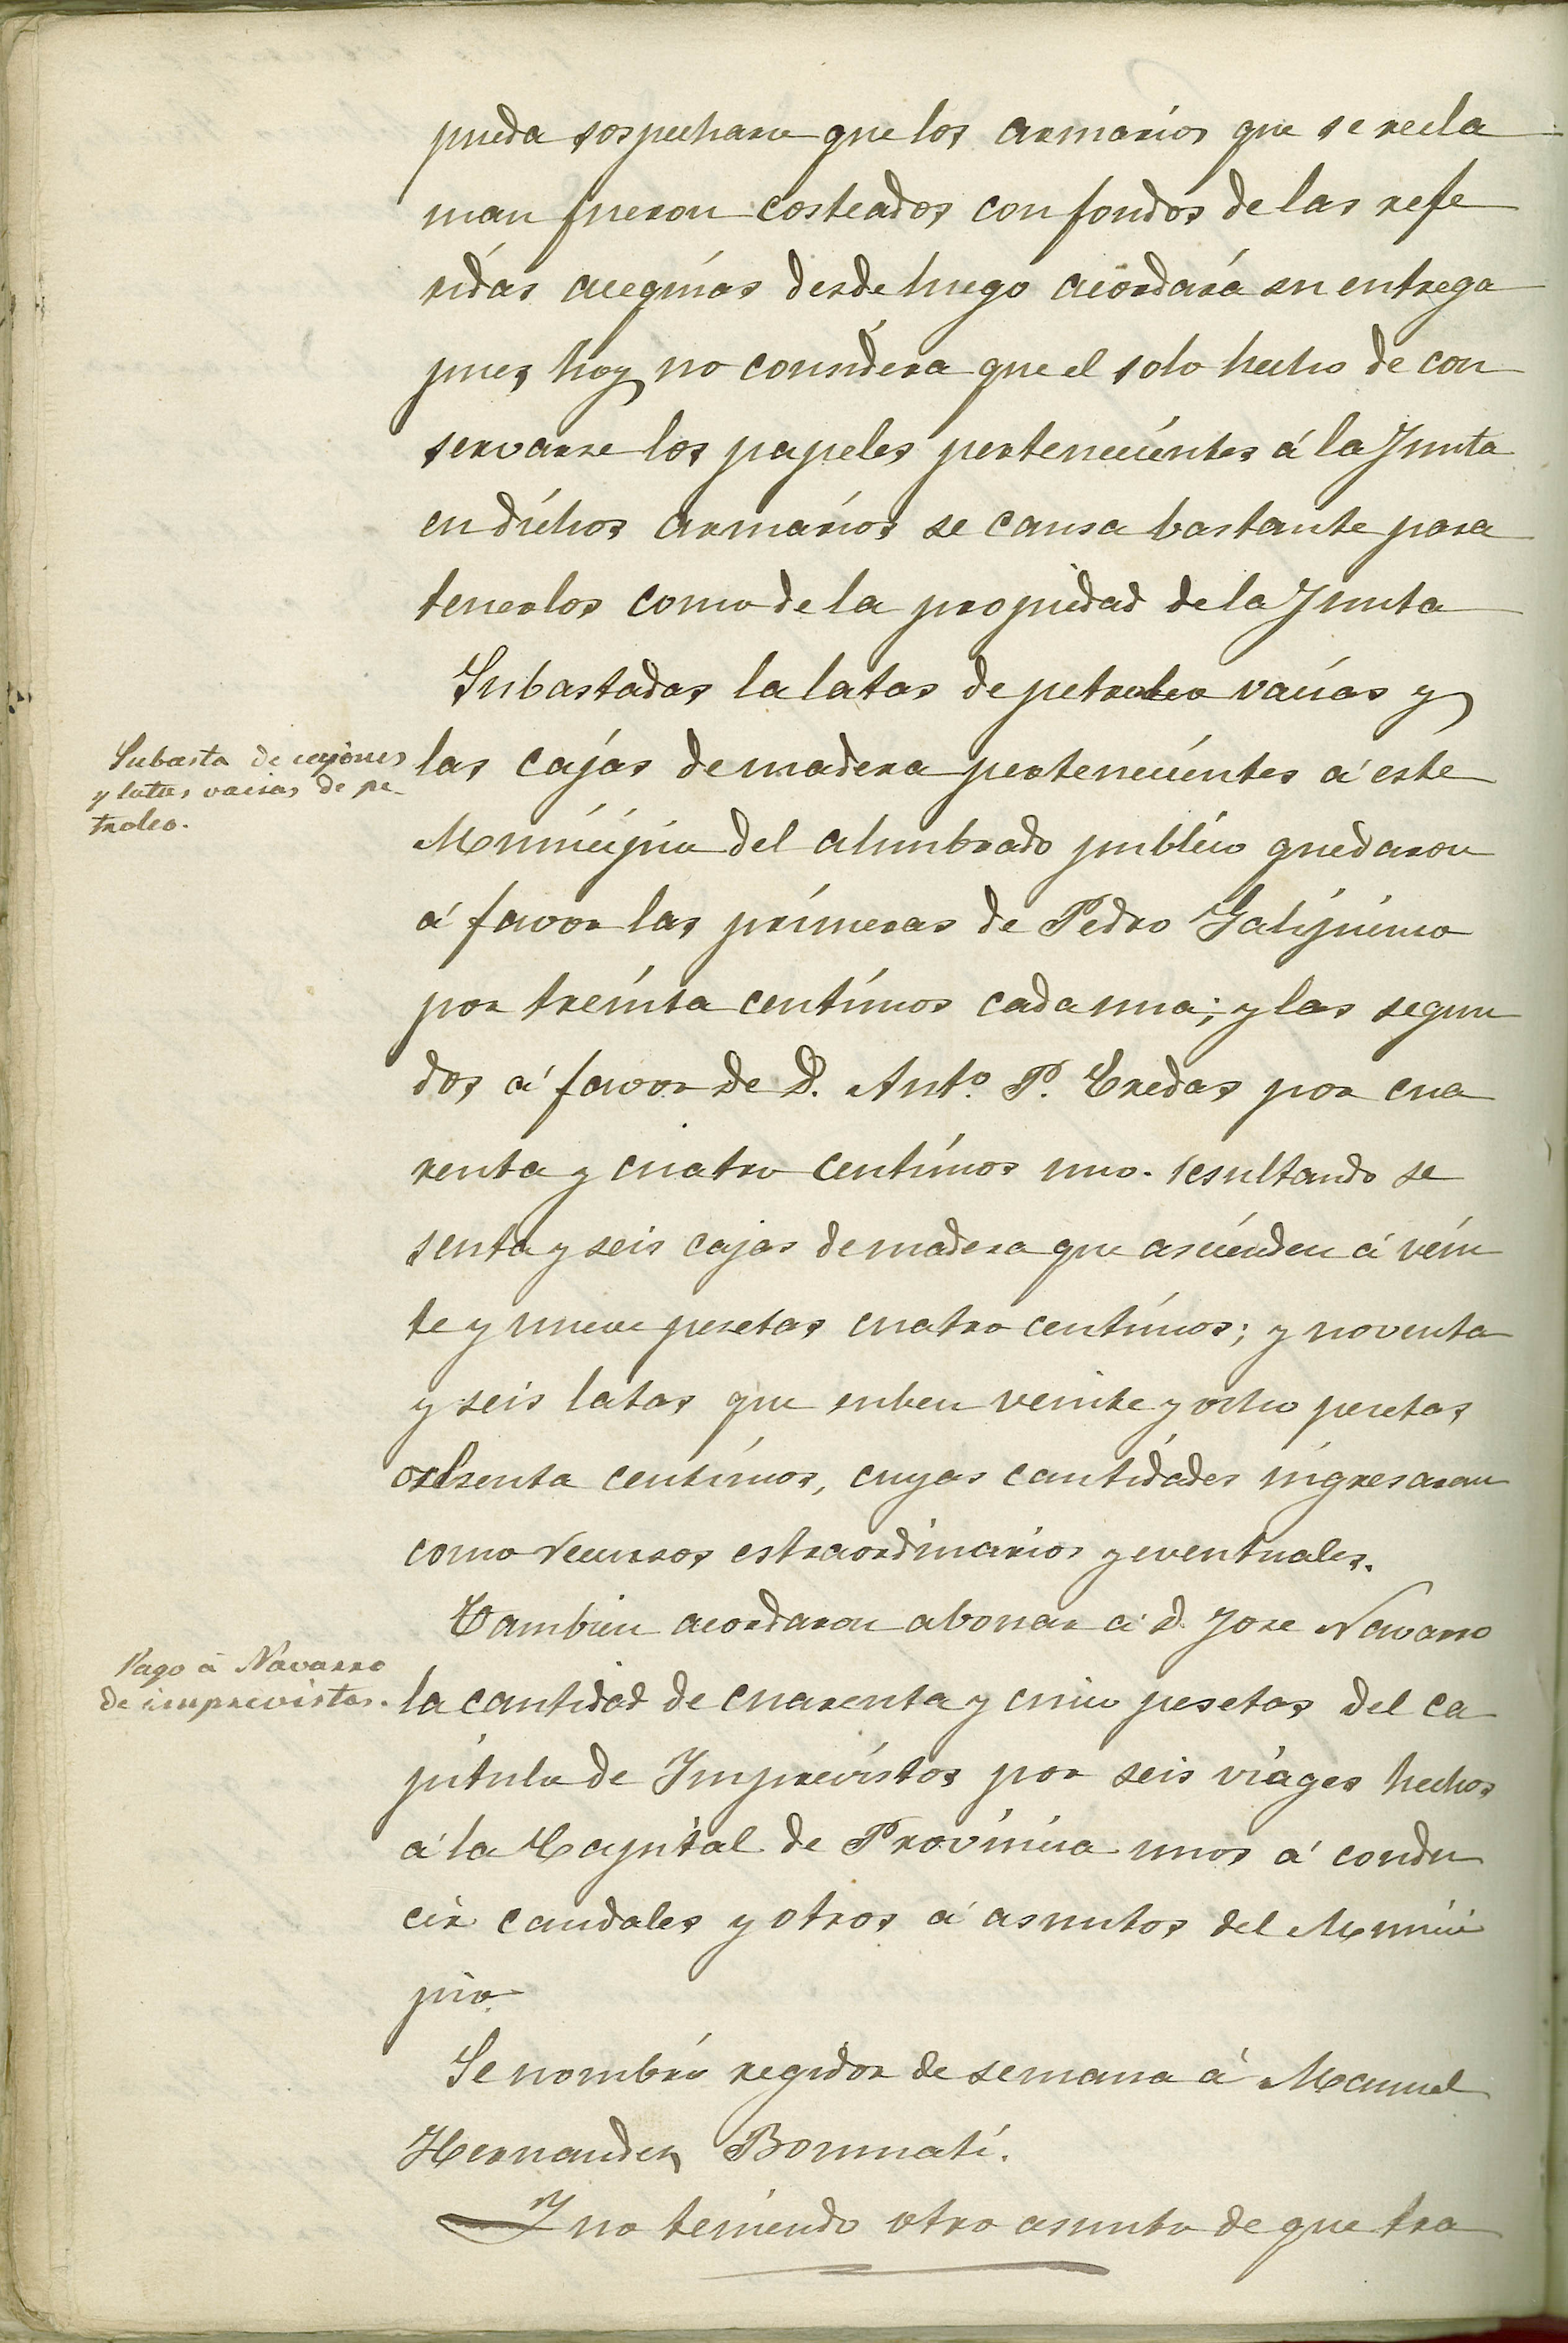 pueda sospecharse que los armarios que se recla
man fueron costeados con fondos de las refe
ridas acequias desde luego acordará su entrega
pues hoy no considera que el solo hecho de con
servarse los papeles pertenecientes á la Junta
en dichos armarios se causa bastante para
tenerlos como de la propiedad de la Junta
Subastadas la latas de petroleo vacias y
Subasta de cajones
y latas vacias de pe-
troleo.
las cajas de madera pertenecientes á este
Municipio del alumbrado publico quedaron
á favor las primeras de Pedro Galipienso
por treinta centimos cada una; y las segun
dos á favor de D. Antº. P. Eredas por cua
renta y cuatro centimos uno. resultando se
senta y seis cajas de madera que ascienden á vein
te y nueve pesetas cuatro centimos; y noventa
y seis latas que suben veinte y ocho pesetas
ochenta centimos, cuyas cantidades ingresaran
como recursos estraordinarios y eventuales.
Tambien acordaron abonar á D. Jose Navarro
Pago á Navarro
de imprevistos.
la cantidad de cuarenta y cinco pesetas del ca
pitulo de Imprevistos por seis viages hechos
á la Capital de Provincia unos á condu
cir caudales y otros á asuntos del Munici
pio.
Se nombró regidor de semana á Manuel
Hernandez Bonmati.
Y no teniendo otro asunto de que tra